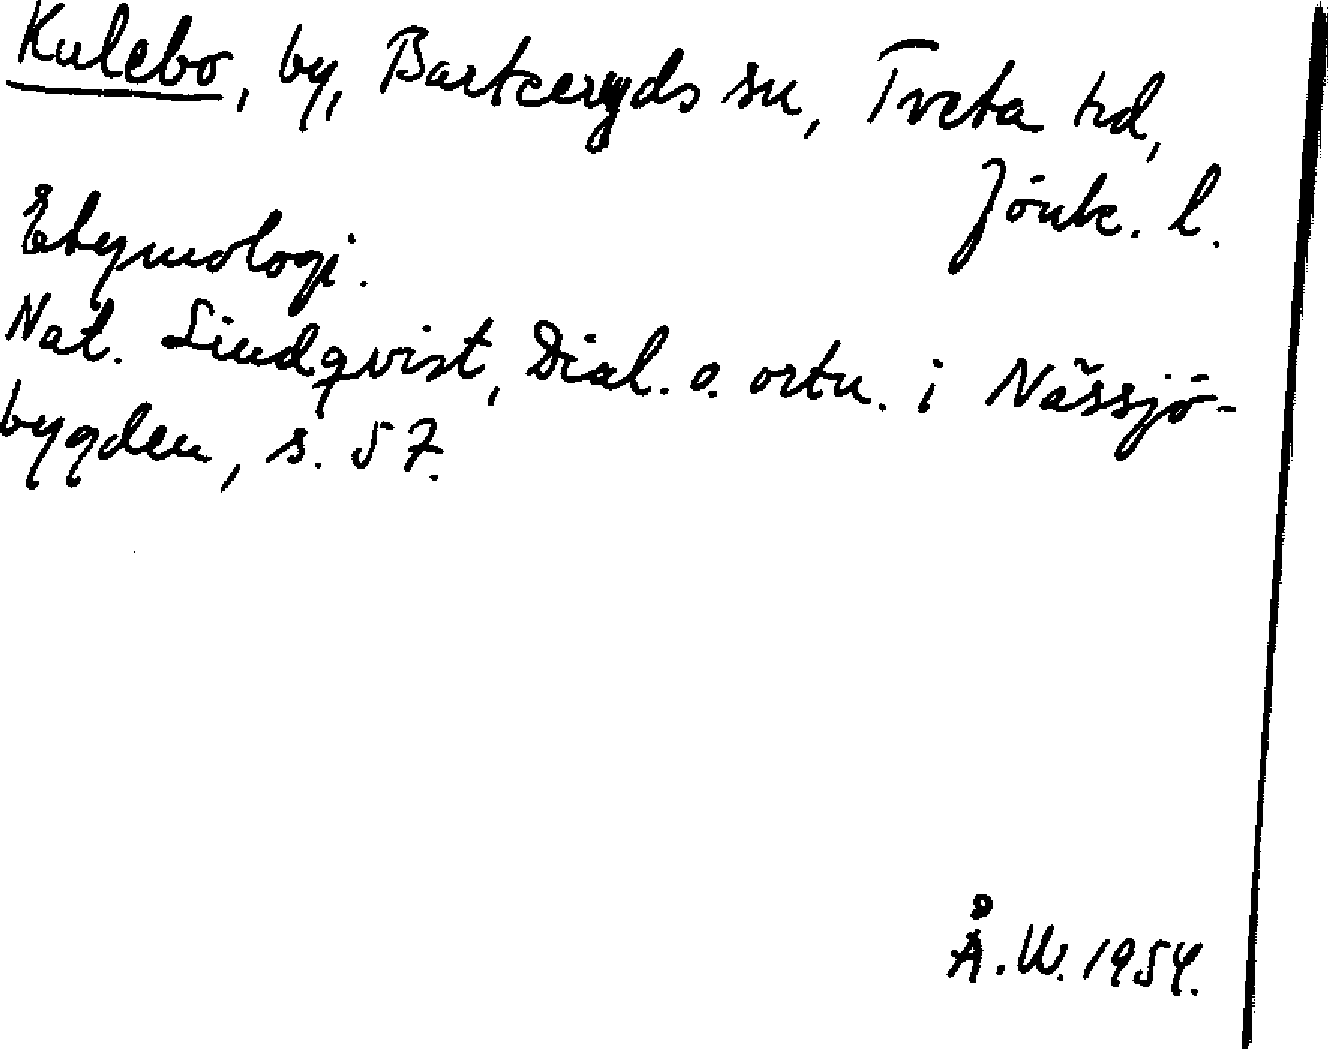 Kulebo, by, Barkeryds sn, Tveta hd,
Jönk. l.
Etymologi.
Nat. Lindqvist, Dial. o. ortn. i Nässjö-
bygden, s. 57.
Å.W. 1954.